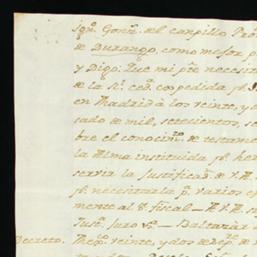 Ign.º Gonz.z del Campillo Pro
de Durango, como mejor p
y Digo: Que mi p.te necesit
de la R.l ced.a expedida p.r S
en Madrid à los veinte, y
sado de mil, setecientos, se
bre el conocim.to de testame
la Alma instituida p.r her
servir la Justificaz.n de V.A.
p.r necesitarla p.a varios ef
mente al S.r Fiscal — A V.A. su
Just.a Juro V.a — Baltazar
Decreto. Thep.o veinte, y dos de Sep.e de